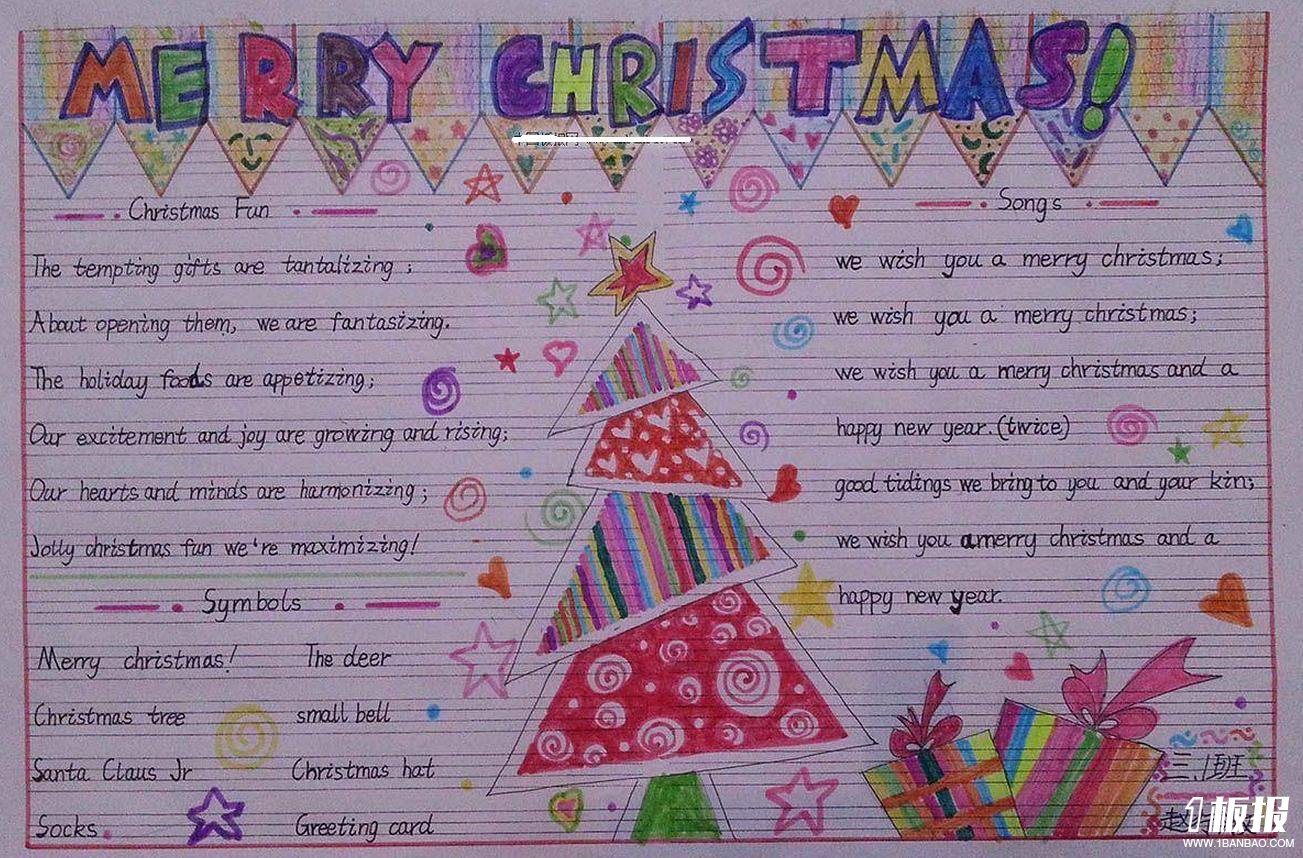 MERRY CHRISTMAS!
Christmas Fun
The tempting gifts are tantalizing ;
About opening them, we are fantasizing.
The holiday foods are appetizing;
Our excitement and joy are growing and rising;
Our hearts and minds are harmonizing ;
Jolly christmas fun we're maximizing!
Symbols
Merry christmas! The deer
Christmas tree small bell
Santa Claus Jr Christmas hat
Socks Greeting card
Songs
we wish you a merry christmas;
we wish you a merry christmas;
we wish you a merry christmas and a
happy new year.(twice)
good tidings we bring to you and your kin;
we wish you amerry christmas and a
happy new year.
三.1班
赵
1板报
WWW.1BANBAO.COM